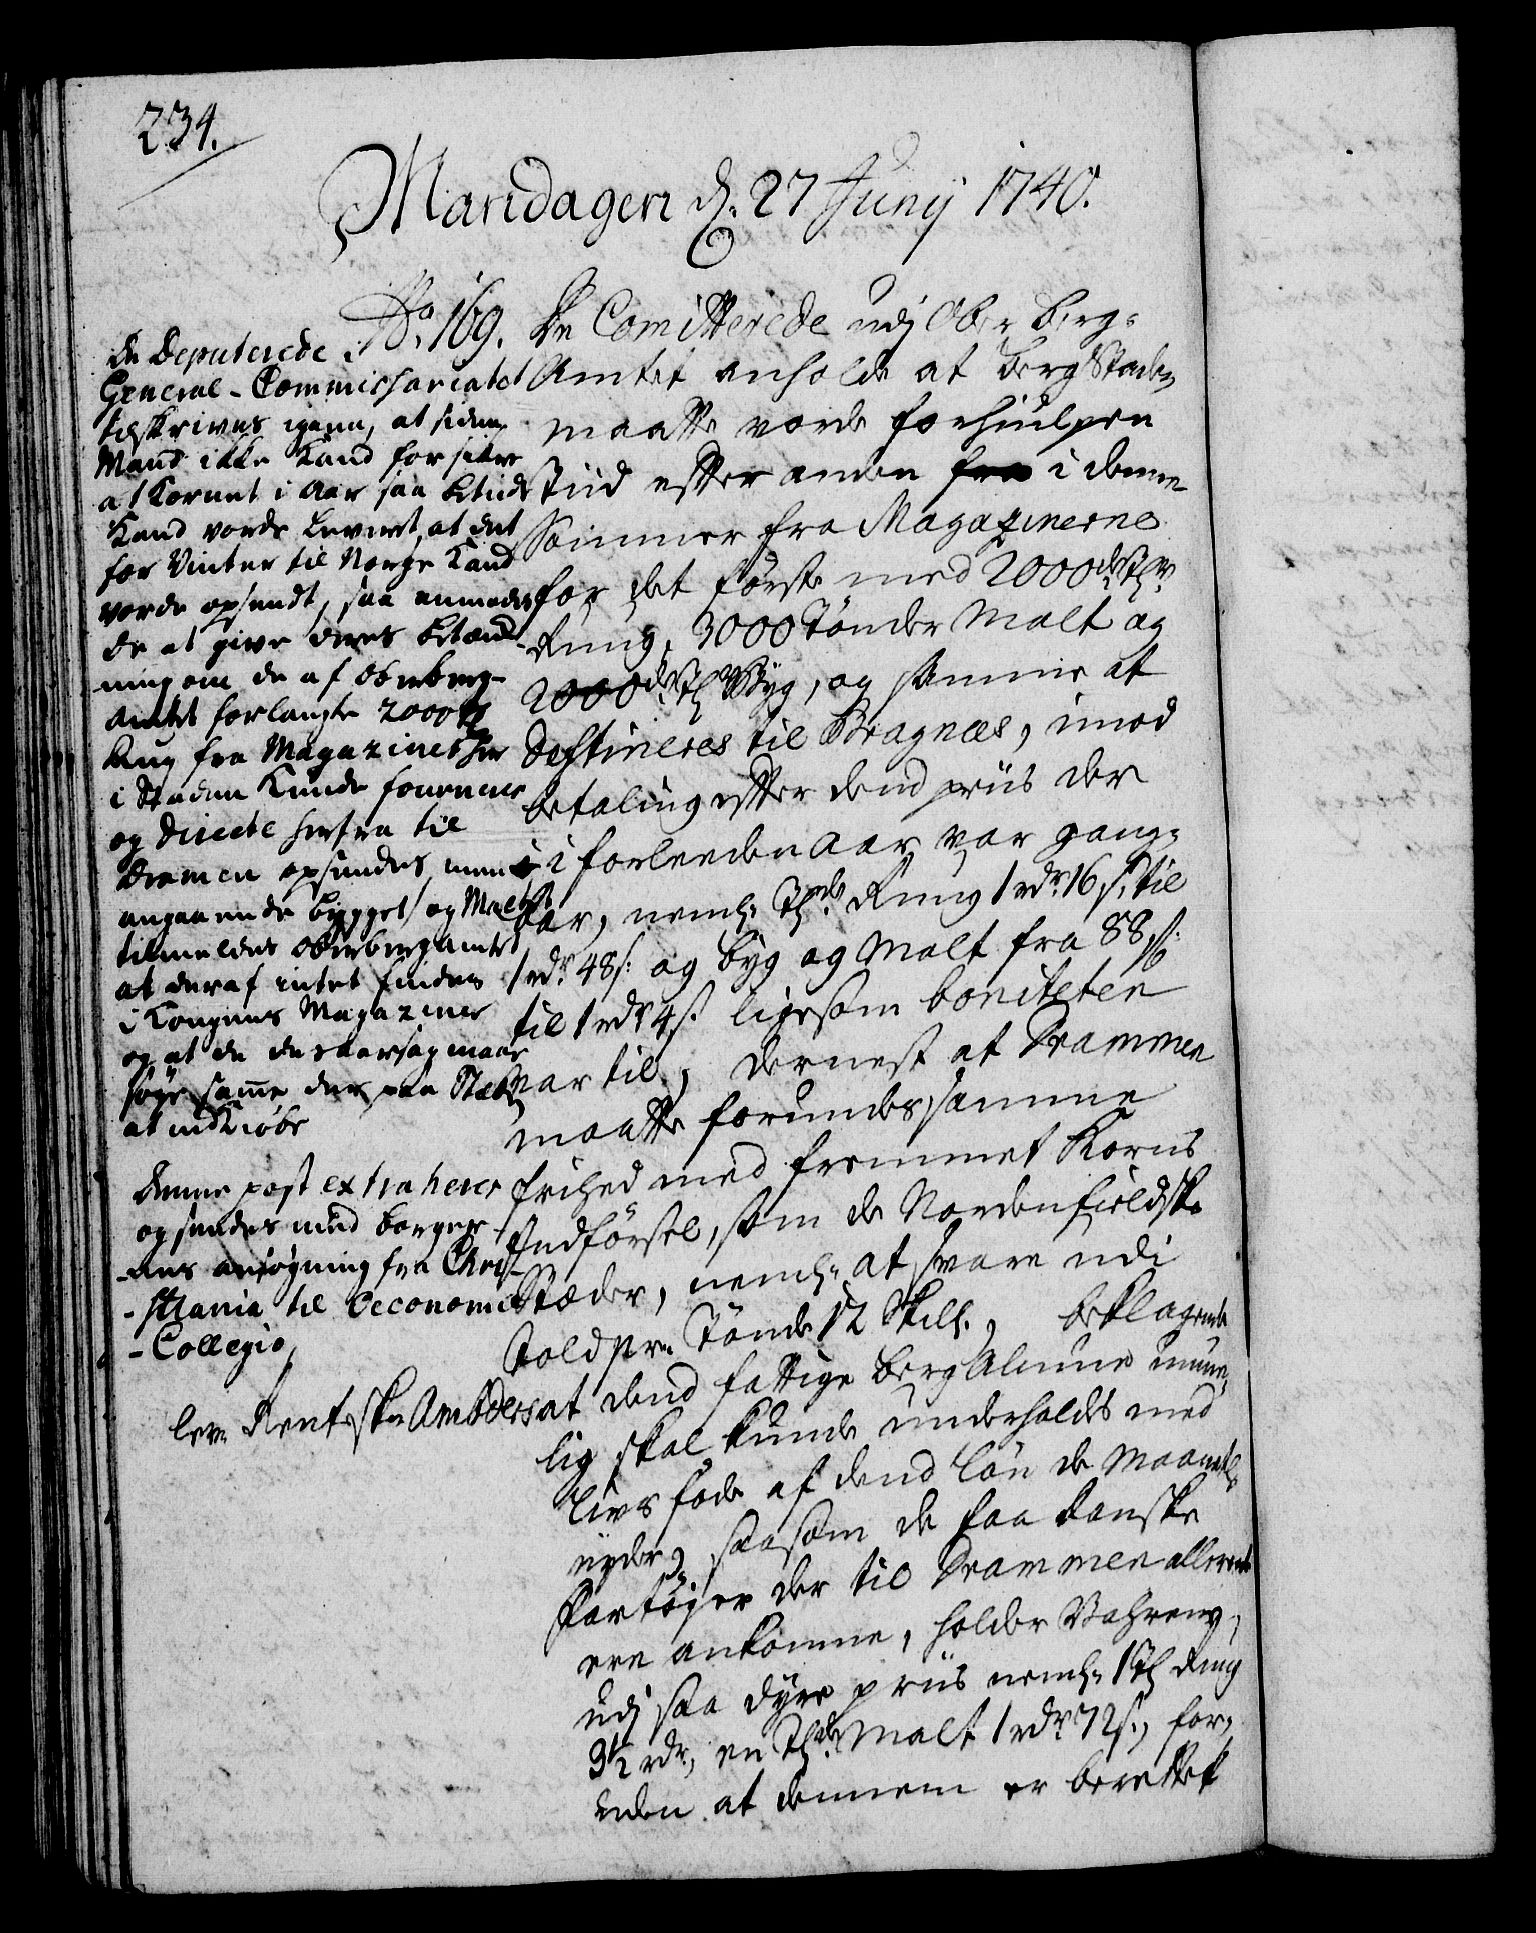 234.
Mandagen d. 27 Junij 1740.
No. 169. De Comitterede udj Ober Berg-
Amtet anholde at BergStaden
maatte vorde forhiulpen
tiid efter anden fra i denne
Sommer fra Magazinerne
for det förste med 2000 Tr
Rug, 3000 Tönder Malt og
2000 Byg, og samme at
Destineres til Bragnæs, imod
betaling efter dend priis der
i forleeden Aar var gang-
bar, neml. Tde Rug 1 rdr. 16 s. til
1 rdr. 48 s: og byg og Malt fra 88 s:
til 1 rdr 4 s. ligesom boniteten
var til, dernest at Drammen
maatte forundes samme
frihed med fremmet Korns
Indförsel, som de Nordenfieldske
Stæder, neml. at svare udi
Told pr. Tönde 12 Skill., beklagende
at dend fattige Berg Almue umue-
lig skal kunde underholdes med
livs føde af dend løn de Maanetl.
nyder, saasom de faa danske
Fartöjer der til Drammen allereede
ere ankomne, holder Vahrene,
udj saa dyre priis neml. 1 Td Rug
3½ rdr., en Td. Malt 1 rdr. 72 s., for-
uden at dennem er berettet
De Deputerede i
General-Commissariatet
tilskrives igien, at siden
Mand ikke Kand forsikre
at Kornet i Aar saa betids
Kand vorde leveret, at det
for Vinter til Norge Kand
vorde opsendt, saa anmodes
de at give deres betænk-
ning om de af Oberberg-
Amtet forlangte 2000 Td
Rug fra Magazinet her
i Staden Kunde fourneres
og directe herfra til
Dramen opsendes, men
angaaende bygget og Maltet
tilmeldes Oberbergamtet
at deraf intet findes
i Kongens Magaziner
og at de desaarsag maae
søge samme der paa Stædet
at indKiøbe
Denne post extraheres
og sendes med borger-
nes ansøgning fra Chri-
stiania til Oeconomie
-Collegio
lev. Rentesk. Amders